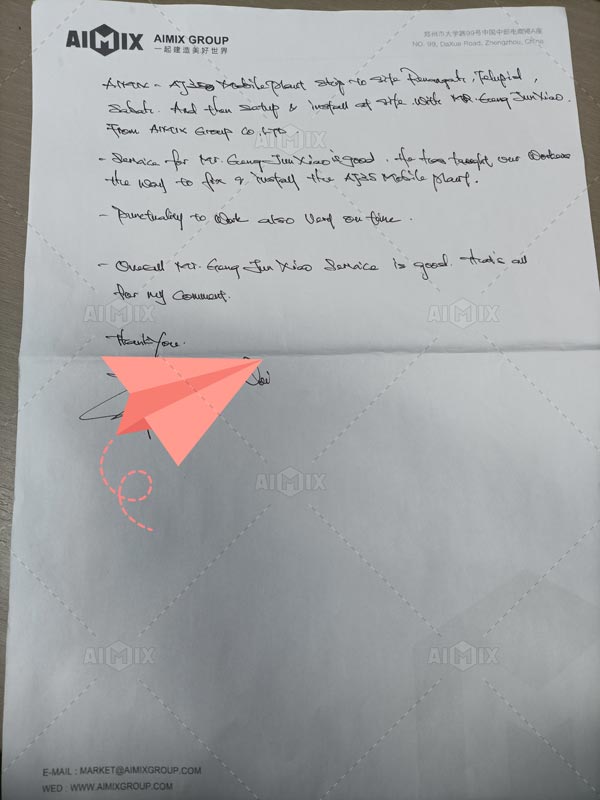 AIMIX
AIMIX GROUP
一起建造美好世界
郑州市大学路99号中国中部电商港A座
NO. 99, DaXue Road, Zhengzhou, China
AIMIX - AJ35 Mobile plant ship to site Telupid,
Sabah. And then Setup & install at site with MR. Geng Jun Xiao
From AIMIX Group Co,LTD.
- Service for Mr. Geng Jun Xiao is good. He has taught our workers
the way to fix & install the AJ35 Mobile plant.
- Punctuality to work also very on time.
- Overall Mr. Geng Jun Xiao Service is good. that's all
for my comment.
Thank you.
AIMIX
AIMIX
AIMIX
AIMIX
AIMIX
AIMIX
E-MAIL : MARKET@AIMIXGROUP.COM
WED : WWW.AIMIXGROUP.COM